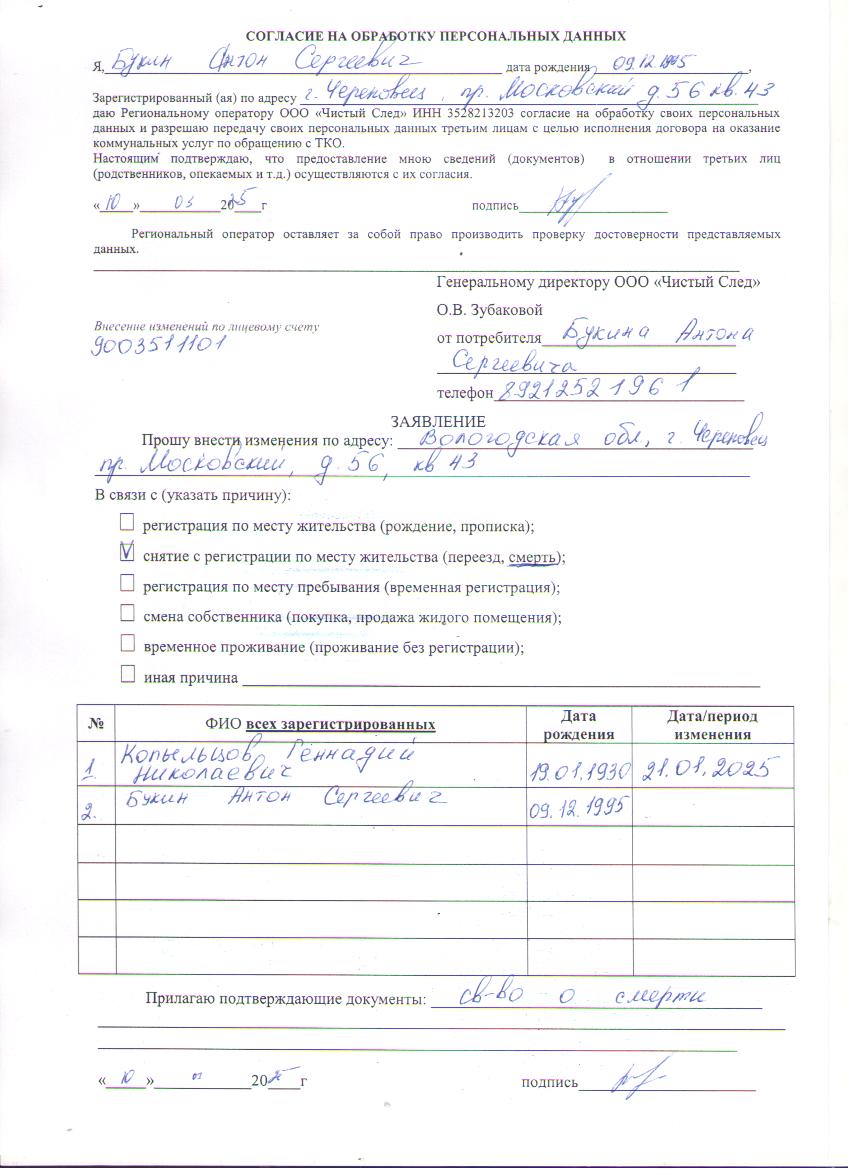 СОГЛАСИЕ НА ОБРАБОТКУ ПЕРСОНАЛЬНЫХ ДАННЫХ
Я, Букин Антон Сергеевич дата рождения 09.12.1995,
Зарегистрированный (ая) по адресу г. Череповец, пр. Московский д. 56 кв. 43
даю Региональному оператору ООО «Чистый След» ИНН 3528213203 согласие на обработку своих персональных
данных и разрешаю передачу своих персональных данных третьим лицам с целью исполнения договора на оказание
коммунальных услуг по обращению с ТКО.
Настоящим подтверждаю, что предоставление мною сведений (документов) в отношении третьих лиц
(родственников, опекаемых и т.д.) осуществляются с их согласия.
«10» 03 2025 г подпись
Региональный оператор оставляет за собой право производить проверку достоверности представляемых
данных.
Генеральному директору ООО «Чистый След»
О.В. Зубаковой
Внесение изменений по лицевому счету
9003511101
от потребителя Букина Антона
Сергеевича
телефон 89212521961
ЗАЯВЛЕНИЕ
Прошу внести изменения по адресу: Вологодская обл, г. Череповец
пр. Московский, д. 56, кв 43
В связи с (указать причину):
регистрация по месту жительства (рождение, прописка);
V снятие с регистрации по месту жительства (переезд, смерть);
регистрация по месту пребывания (временная регистрация);
смена собственника (покупка, продажа жилого помещения);
временное проживание (проживание без регистрации);
иная причина
№ ФИО всех зарегистрированных Дата рождения Дата/период изменения
1 Копыльцов Геннадий Николаевич 19.01.1930 21.01.2025
2. Букин Антон Сергеевич 09.12.1995
Прилагаю подтверждающие документы: св-во о смерти
«10» 2025 г подпись